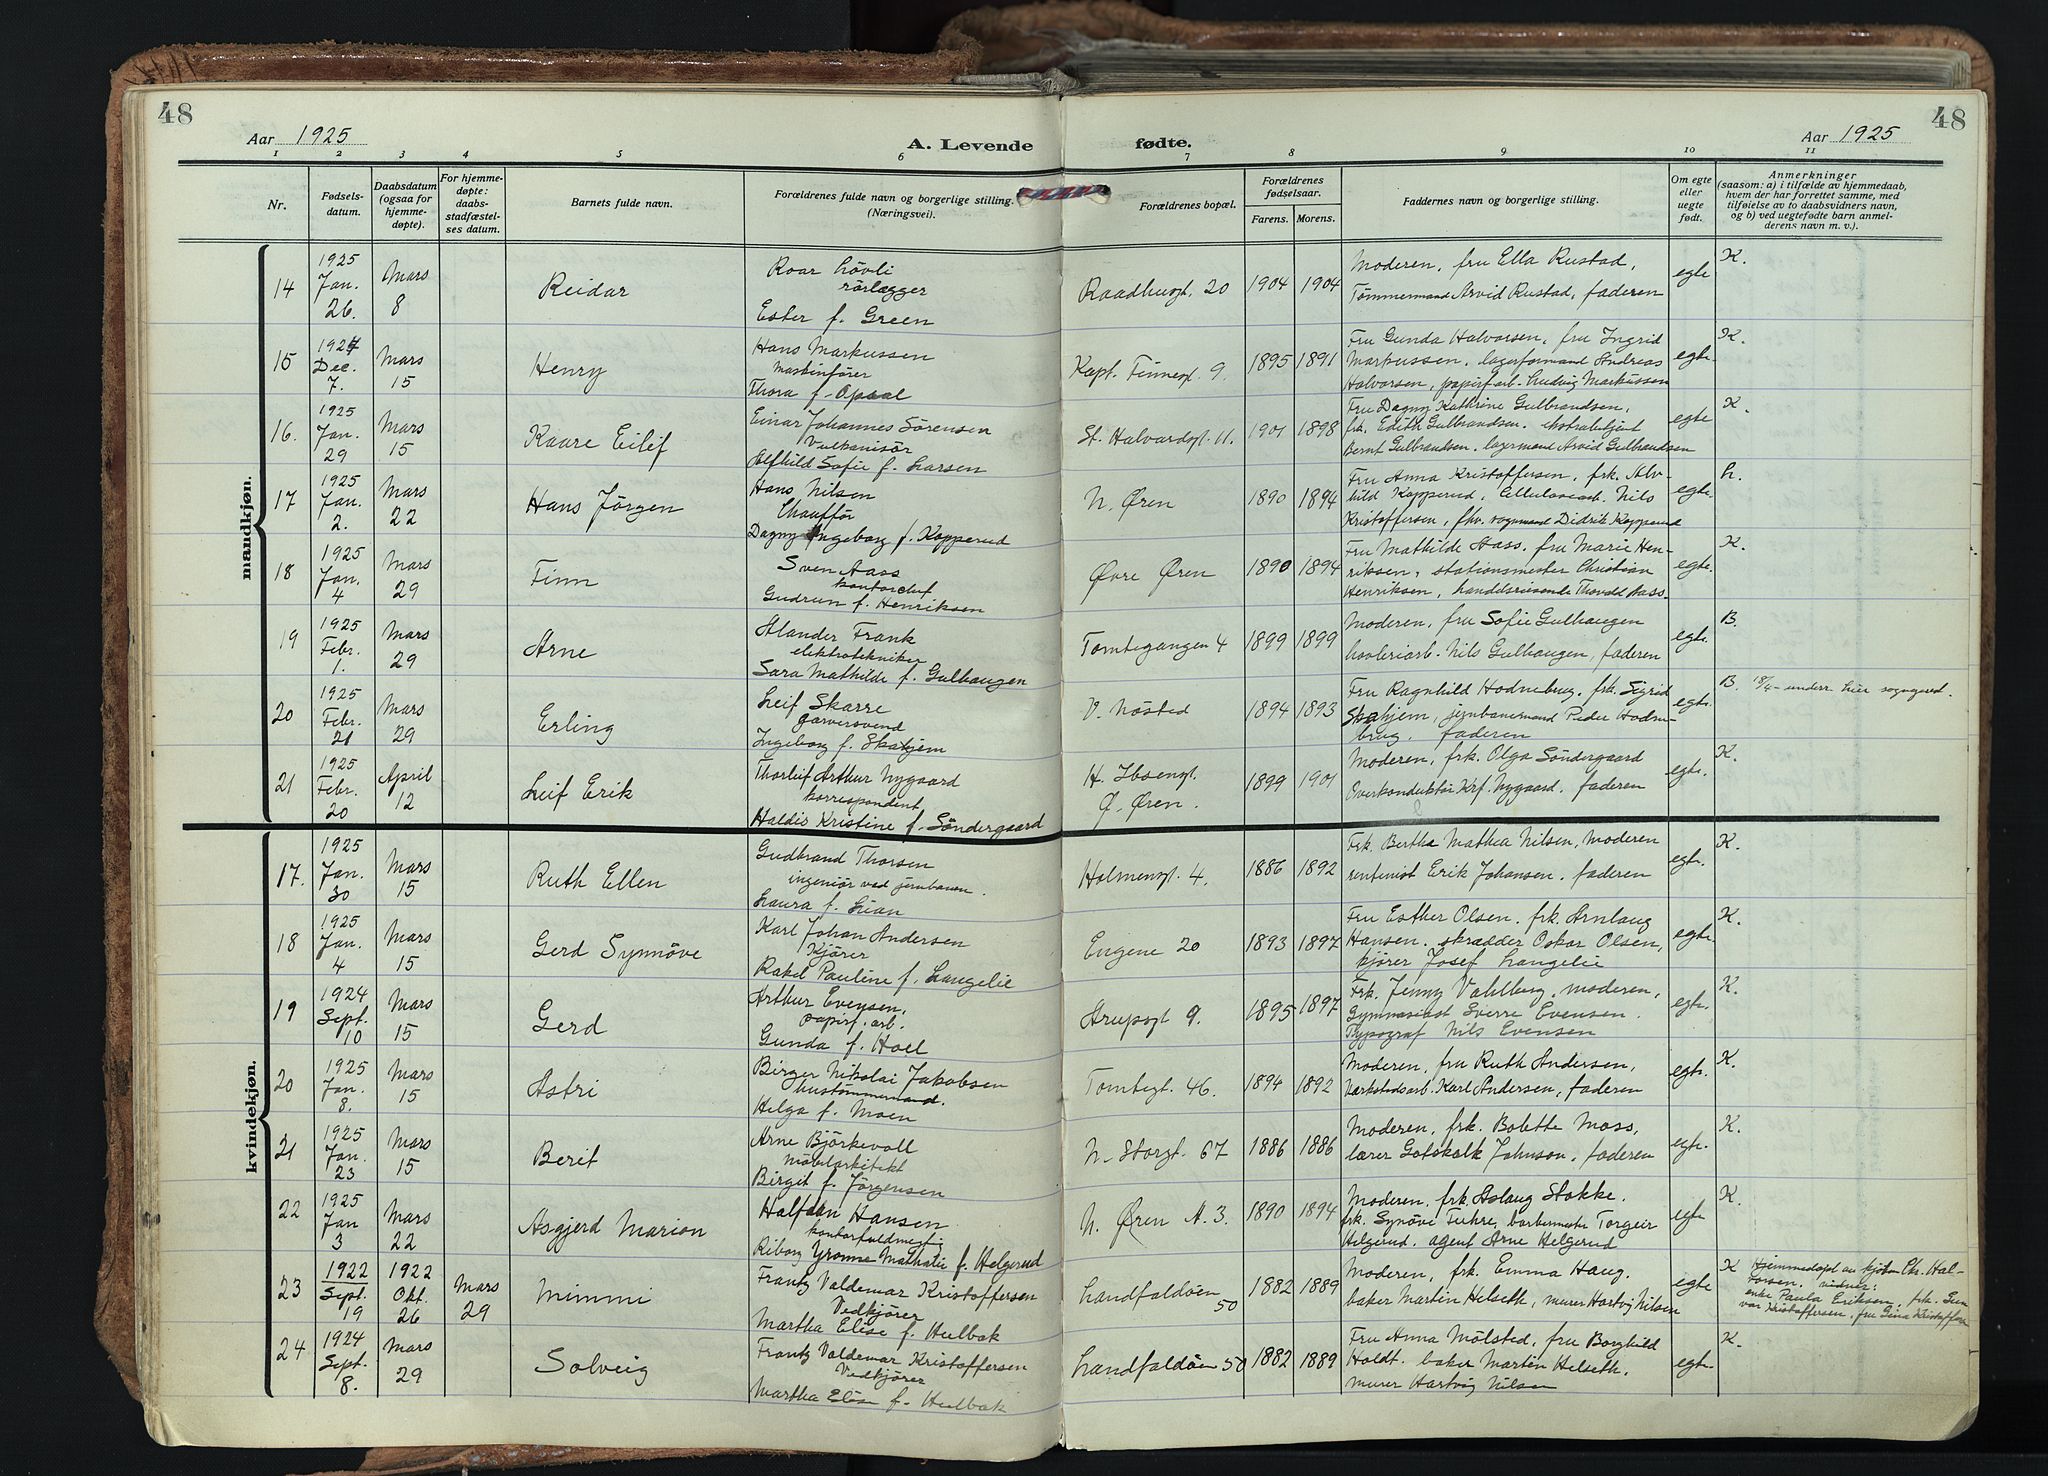 48
48
Aar 1925
A. Levende fødte.
Aar 1925
1 2 3 4 5 6 7 8 9 10 11
Nr.
Fødsels-
datum.
Daabsdatum
(ogsaa for
hjemme-
døpte).
For hjemme-
døpte:
daabs-
stadfæstel-
ses datum.
Barnets fulde navn.
Forældrenes fulde navn og borgerlige stilling.
(Næringsvei).
Forældrenes bopæl.
Forældrenes
fødselsaar.
Farens. Morens.
Faddernes navn og borgerlige stilling.
Om egte
eller
uegte
født.
Anmerkninger
(saasom: a) i tilfælde av hjemmedaab,
hvem der har forrettet samme, med
tilføielse av to daabsvidners navn,
og b) ved uegtefødte barn anmel-
derens navn m. v.).
mandkjøn.
14
1925
Jan.
26.
Mars
8
Reidar
Roar Lövli
rörlægger
Ester f. Green
Raadhusgt. 20
1904 1904
Moderen, fru Ella Rustad,
Tömmermand Arvid Rustad, faderen
egte
K.
15
1924
Dec.
7.
Mars
15
Henry
Hans Markussen
Maskinfører
Thora f. Opsal
Kapt. Finnesgt. 9.
1895 1891
Fru Gunda Halvorsen, fru Ingrid
Markussen, lagerformand Andreas
Halvorsen, papirfarb. Ludvig Markussen
egte.
K.
16.
1925
Jan.
29
Mars
15
Kaare Eilif
Einar Johannes Sörensen
Vulkanisör
Alfhild Sofie f. Larsen
St. Halvardsgt. 11.
1901 1898
Fru Dagny Kathrine Gulbrandsen,
frk. Edith Gulbrandsen. ekstrabetjent
Bernt Gulbrandsen. lagermand Arvid Gulbrandsen
egte
K.
17
1925
Jan.
2.
Mars
22
Hans Jörgen
Hans Nilsen
Chaufför
Dagny Ingeborg f. Kopperud
N. Øren
1890 1894
Fru Anna Kristoffersen, frk. Alv-
hild Kopperud, Cellulosearb. Nils
Kristoffersen, fhv. vognmand Didrik Kopperud
egte.
L.
18
1925
Jan.
4
Mars
29
Finn
Sven Aass
kontorchef
Gudrun f. Henriksen
Øvre Øren
1890 1894
Fru Mathilde Aass. fru Marie Hen-
riksen, stationsmester Christian
Henriksen, handelsreisende Thorvald Aass.
egte.
K.
19
1925
Febr.
1.
Mars
29
Arne
Alander Frank
elektrotekniker
Sara Mathilde f. Gulhaugen
Tomtegangen 4
1899 1899
Moderen, fru Sofie Gulhaugen
høvleriarb. Nils Gulhaugen, faderen
egte.
B.
20
1925
Febr.
21
Mars
29
Erling
Leif Skarre
garversvend
Ingeborg f. Skahjem
V. Nösted
1894 1893
Fru Ragnhild Hodnebrug. frk. Sigrid
Skahjem, jernbanemand Peder Hodne-
brug. faderen
egte.
B. 18/4- underr. Lier sogneprd.
21
1925
Febr.
20
April
12
Leif Erik
Thorleif Arthur Nygaard
korrespondent
Haldis Kristine f. Söndergaard
H. Ibsensgt.
Ø. Øren.
1899 1901
Moderen, frk. Olga Söndergaard
Overkonduktör Krf. Nygaard. faderen
egte.
K.
kvindekjøn.
17.
1925
Jan.
30
Mars
15
Ruth Ellen
Gudbrand Thorsen
ingeniør ved jernbanen.
Laura f. Lian
Holmensgt. 4.
1886 1892
Frk. Bertha Mathea Nilsen, moderen
rentenist Erik Johansen. faderen
egte.
K.
18
1925
Jan.
4
Mars
15
Gerd Synnöve
Karl Johan Andersen
Kjörer
Rakel Pauline f. Langelie
Engene 20
1893 1897
Fru Esther Olsen. frk. Arnlaug
Hansen. skrædder Oskar Olsen,
kjörer Josef Langelie
egte.
K.
19
1924
Sept.
10
Mars
15
Gerd
Arthur Evensen.
papirf. arb.
Gunda f. Hoel
Arupsgt 9.
1895 1897
Frk. Jenny Vahlberg. moderen,
Gymnasiast Sverre Evensen.
Typograf Nils Evensen
egte.
K.
20
1925
Jan.
8.
Mars
15
Astri
Birger Nikolai Jakobsen
hustömmermand.
Helga f. Moen
Tomtegt. 46.
1894 1892
Moderen, fru Ruth Andersen,
Værkstedsarb. Karl Andersen, faderen
egte.
K.
21
1925
Jan.
23
Mars
15
Berit
Arne Björkevoll
möbelarkitekt
Birgit f. Jörgensen
N. Storgt. 67
1886 1886
Moderen, frk. Bolette Moss,
lærer Gotskalk Johnson. faderen
egte.
K.
22
1925
Jan
3
Mars
22
Asgjerd Marion
Halfdan Hansen
kontorfuldmegtig
Riborg Yvonne Mathalie f. Helgerud
N. Øren A. 3.
1890 1894
Moderen, frk. Aslaug Stokke.
frk. Synöve Fuhre, barbermester Torgeir
Helgerud. agent Arne Helgerud
egte
K.
23
1922
Sept.
19
1922
Okt.
26
Mars
29
Mimmi
Frantz Valdemar Kristoffersen
Vedkjörer
Martha Elise f. Hulbak
Landfaldöen
50
1882 1889
Moderen, frk. Emma Haug.
baker Martin Helseth, murer Hartvig Nilsen
egte
K Hjemmedöpt av Chr. Hal-
vorsen. vidner:
enke Paula Eriksen. frk. Gun-
vor Kristoffersen, fru Gina Kristoffersen
24
1924
Sept.
8.
Mars
29
Solveig
Frantz Valdemar Kristoffersen
Vedkjörer
Martha Elise f. Hulbak
Landfaldöen 50
1882 1889
Fru Anna Mölsted, fru Borghild
Holdt. baker Martin Helseth.
murer Hartvig Nilsen
egte.
K.